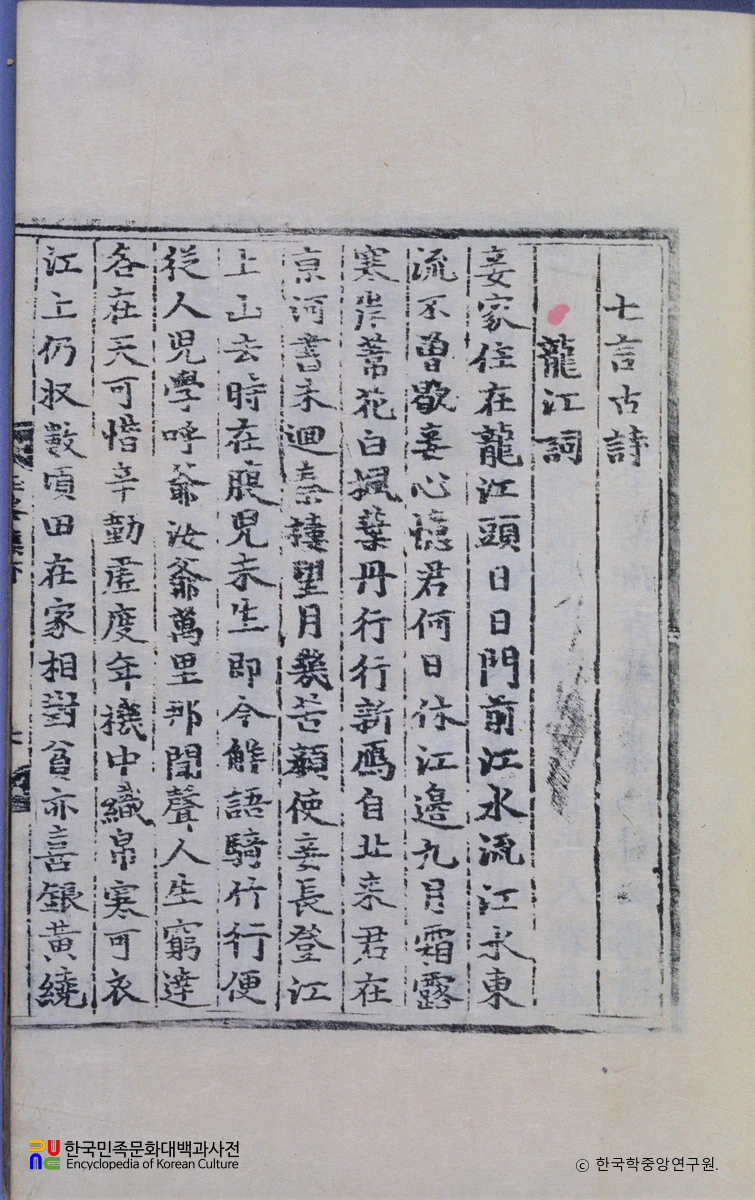 七言古詩
龍江詞
妾家住在龍江頭日日門前江水流江水東
流不曾歇妾心憶君何日休江邊九月霜露
寒岸葦花白楓葉丹行行新鴈自北來君在
京河書未廻秦樓望月幾苦顔使妾長登江
上山去時在腹兒未生即今解語騎竹行便
從人兒學呼爺汝爺萬里那聞聲人生窮達
各在天可惜辛勤虛度年機中織帛寒可衣
江上仍收數頃田在家相對貧亦喜銀黃繞
한국민족문화대백과사전
Encyclopedia of Korean Culture
ⓒ 한국학중앙연구원.